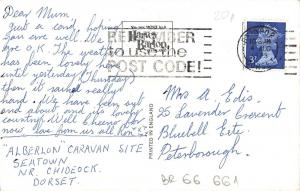 Dear Mum,
Just a card hoping
you are well. We
are O.K. The weather
has been lovely here
until yesterday (Thursday)
then it rained really
hard. We have been out
and about and its lovely
country. Well cheerio for
now, love from us all Ron
"ALBERLON CARAVAN SITE
SEATOWN
NR. CHIDEOCK.
DORSET.
REMEMBER
to use the
POST CODE!
PRINTED IN ENGLAND
20p
Mrs A. Edis.
25 Lavender Crescent
Bluebell Este.
Peterborough.
BR 66 661